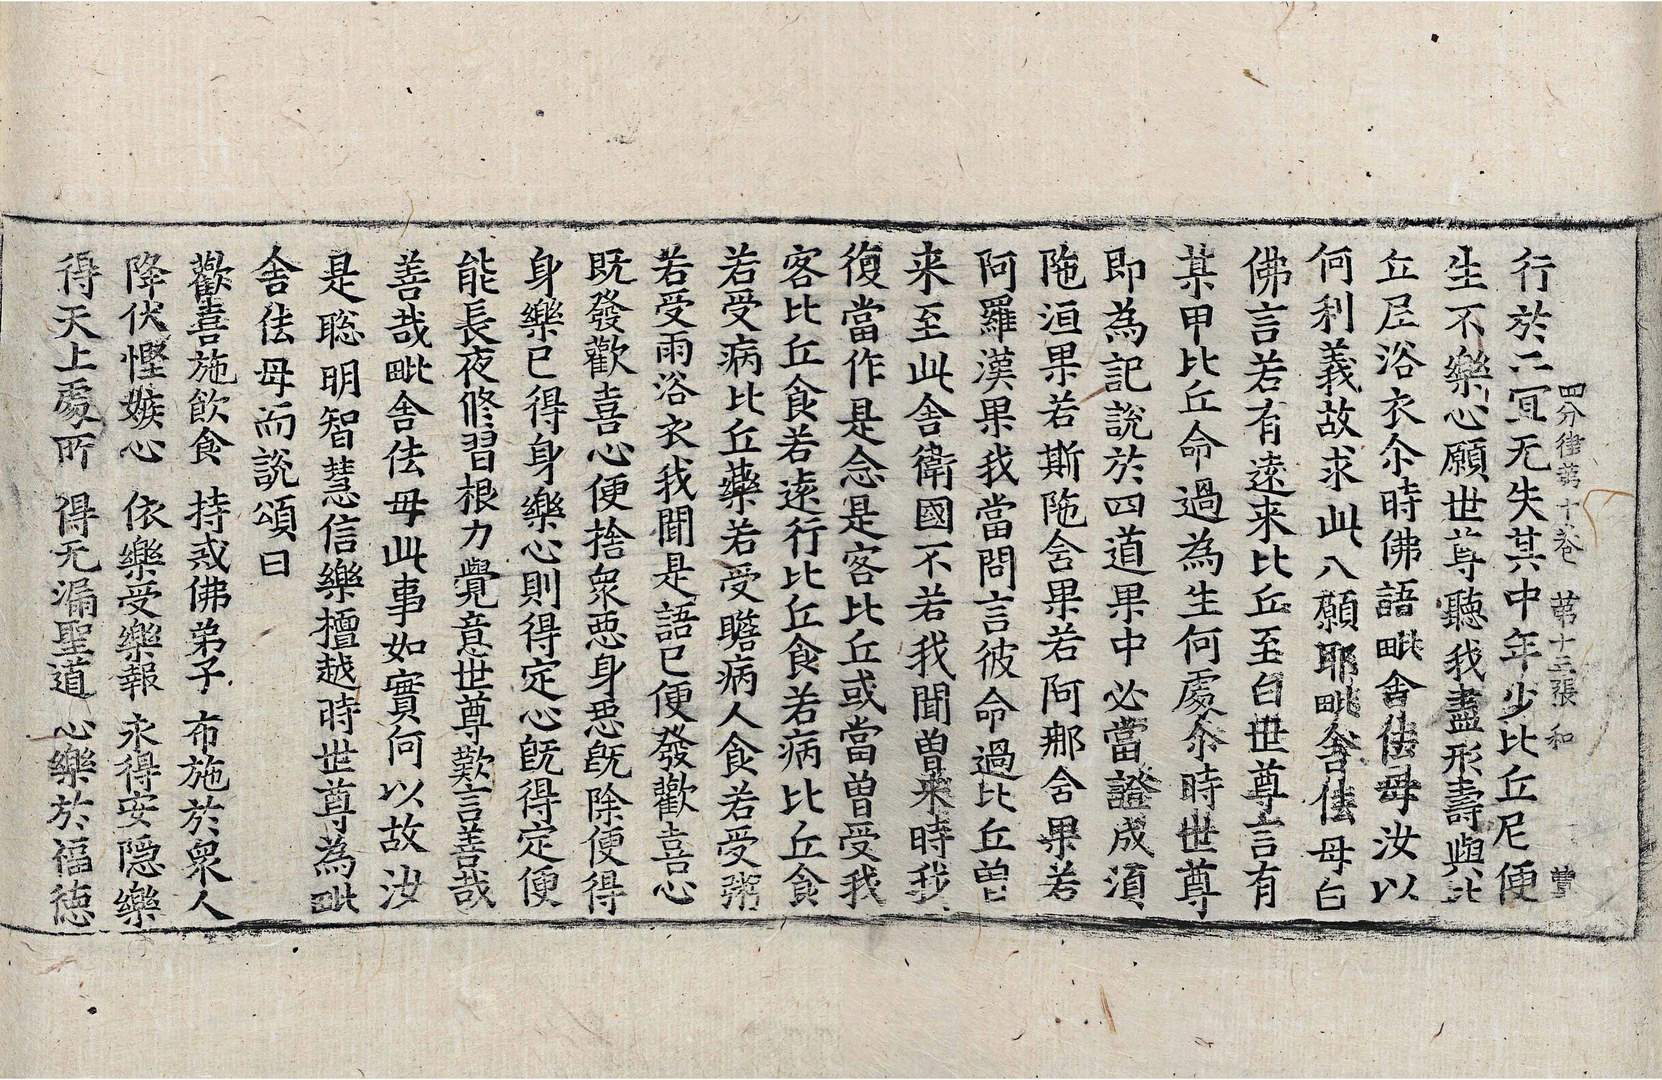 四分律第十卷 第十三張 和
行於二冝无失其中年少比丘尼便
生不樂心願世尊聽我盡形壽與比
丘尼浴衣尒時佛語毗舍佉母汝以
何利義故求此八願耶毗舍佉母白
佛言若有遠来比丘至白世尊言有
某甲比丘命過為生何處尒時世尊
即為記說於四道果中必當證成須
陁洹果若斯陁含果若阿那含果若
阿羅漢果我當問言彼命過比丘曽
来至此舍衛國不若我聞曽来時我
復當作是念是客比丘或當曽受我
客比丘食若遠行比丘食若病比丘食
若受病比丘藥若受瞻病人食若受粥
若受雨浴衣我聞是語已便發歡喜心
既發歡喜心便捨衆惡身惡旣除便得
身樂已得身樂心則得定心旣得定便
能長夜修習根力覺意世尊歎言善哉
善哉毗舍佉母此事如實何以故汝
是聡明智慧信樂檀越時世尊為毗
舍佉母而說頌曰
歡喜施飲食 持戒佛弟子 布施於衆人
降伏慳嫉心 依樂受樂報 永得安隠樂
得天上處所 得无漏聖道 心樂於福德